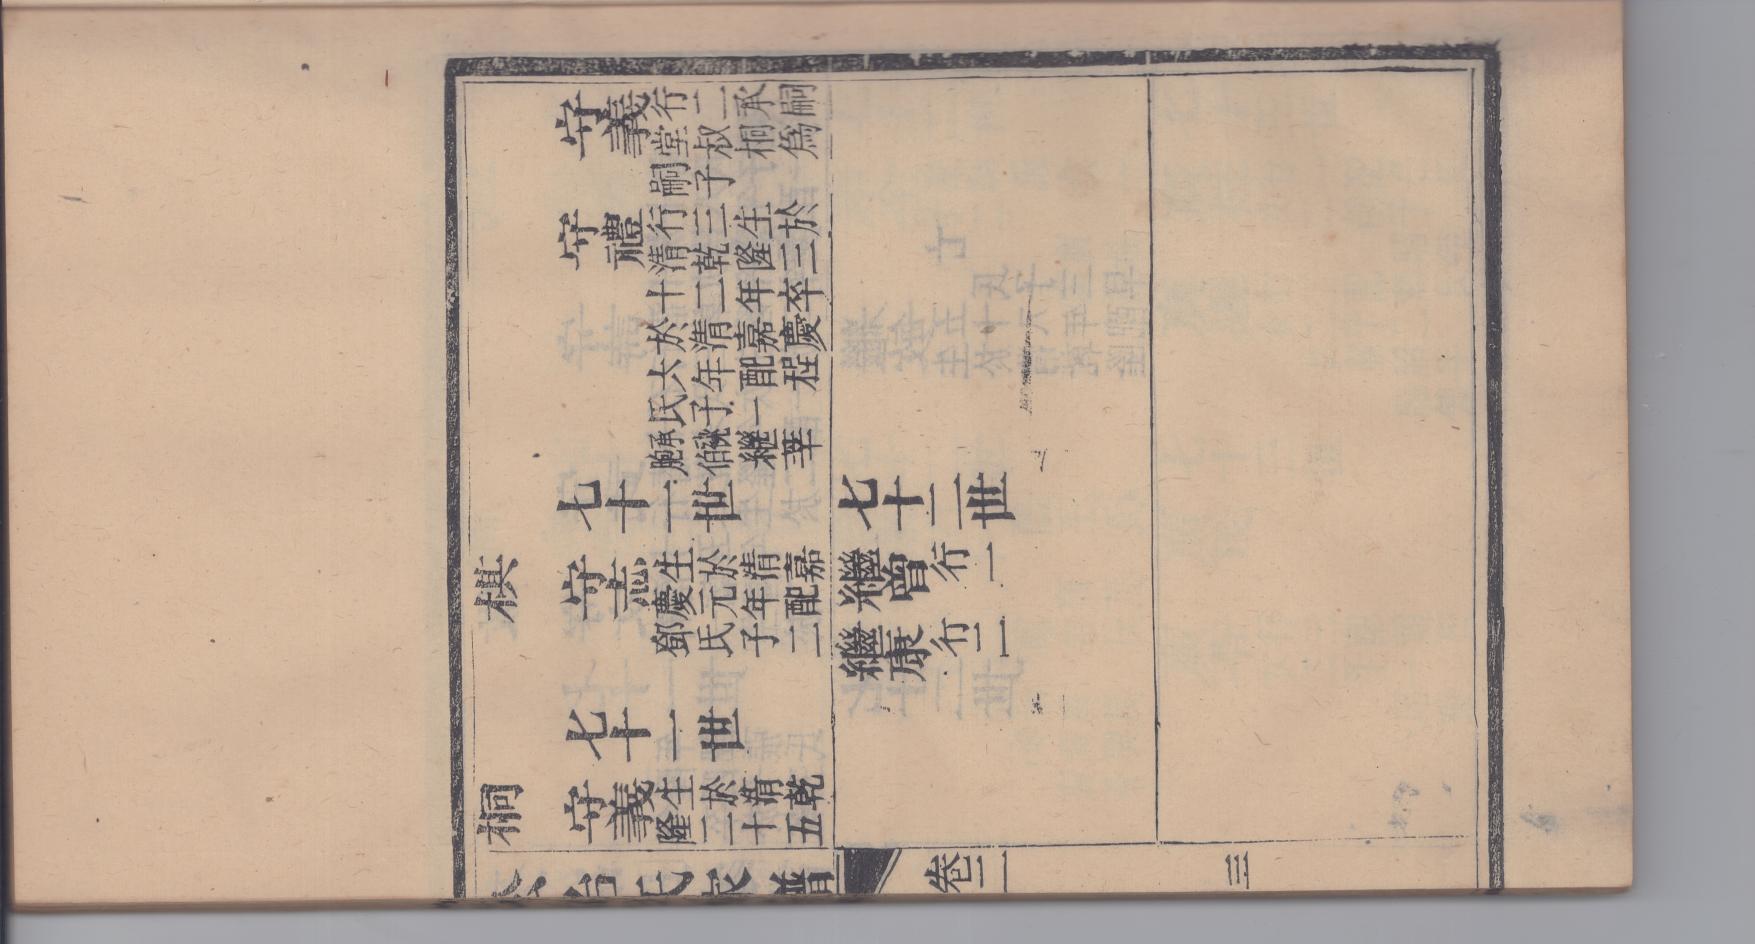 守義 行二承嗣
堂叔桐為
嗣子
守禮 行三生於
清乾隆三
十二年卒
於清嘉慶
六年配程
氏子一
承祧胞伯繼莘
七十一世 七十二世
棋 守志 生於清嘉
慶元年配
鄧氏子二
繼曾 行一
繼康 行二
七十一世
桐 守義 生於清乾
隆二十五
卷二 三